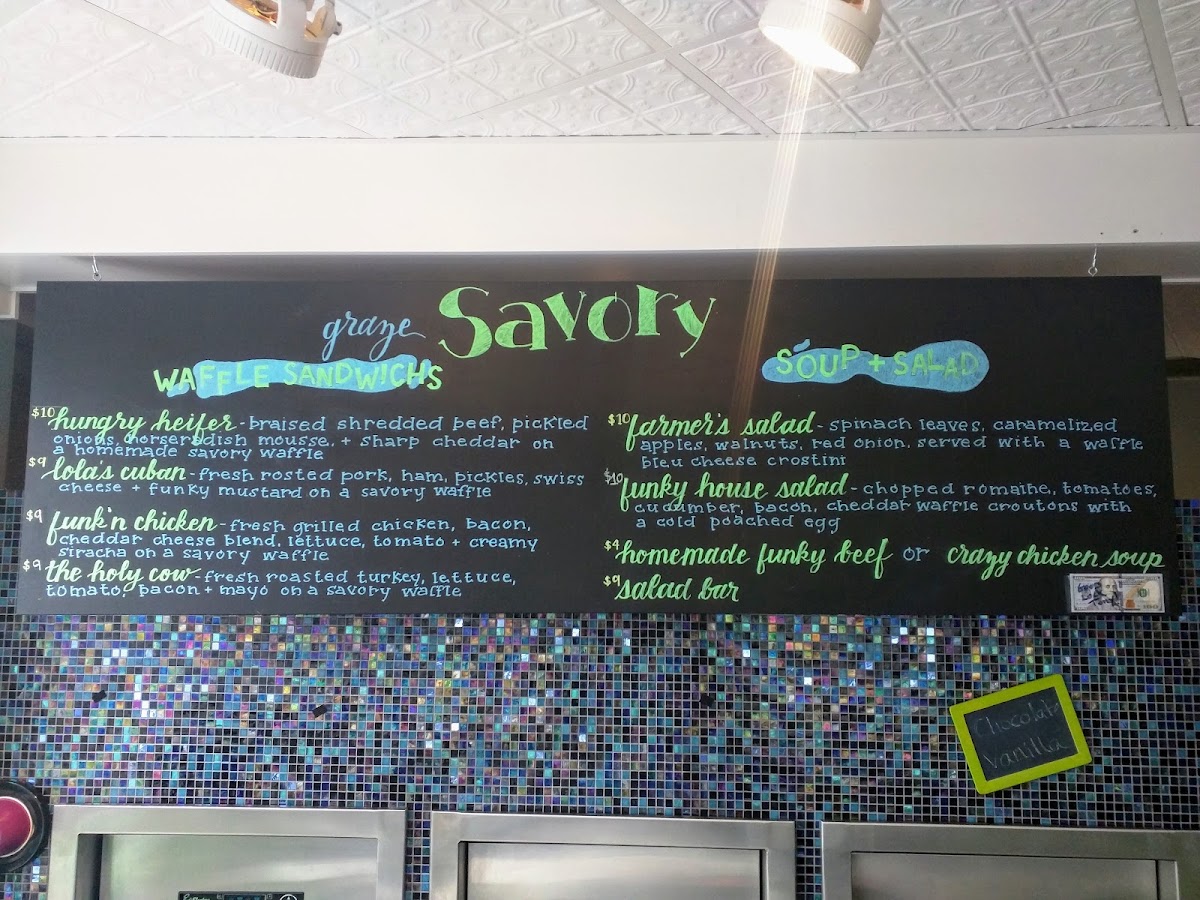 graze Savory
WAFFLE SANDWICHS
$10 hungry heifer - braised shredded beef, pickled
onions, horseradish mousse, + sharp cheddar on
a homemade savory waffle
$9 lola's cuban - fresh rosted pork, ham, pickles, swiss
cheese + funky mustard on a savory waffle
$9 funk'n chicken - fresh grilled chicken, bacon,
cheddar cheese blend, lettuce, tomato + creamy
siracha on a savory waffle
$9 the holy cow - fresh roasted turkey, lettuce,
tomato, bacon + mayo on a savory waffle
SOUP + SALAD
$10 farmer's salad - spinach leaves, caramelized
apples, walnuts, red onion, served with a waffle
bleu cheese crostini
$10 funky house salad - chopped romaine, tomatoes,
cucumber, bacon, cheddar waffle croutons with
a cold poached egg
$4 homemade funky beef or crazy chicken soup
$9 salad bar
Chocolate
Vanilla